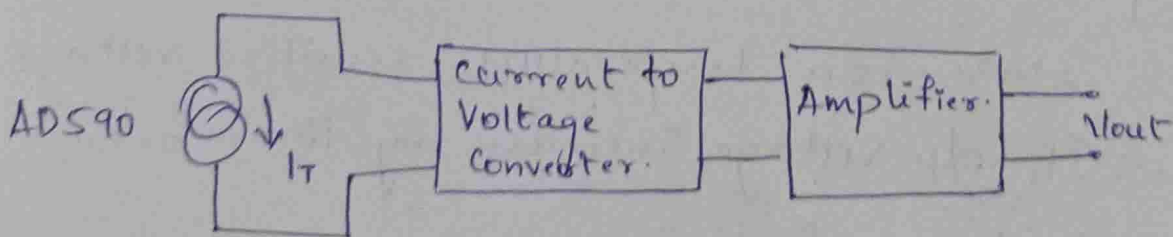 AD590
IT
Current to
Voltage
Converter.
Amplifier.
Vout